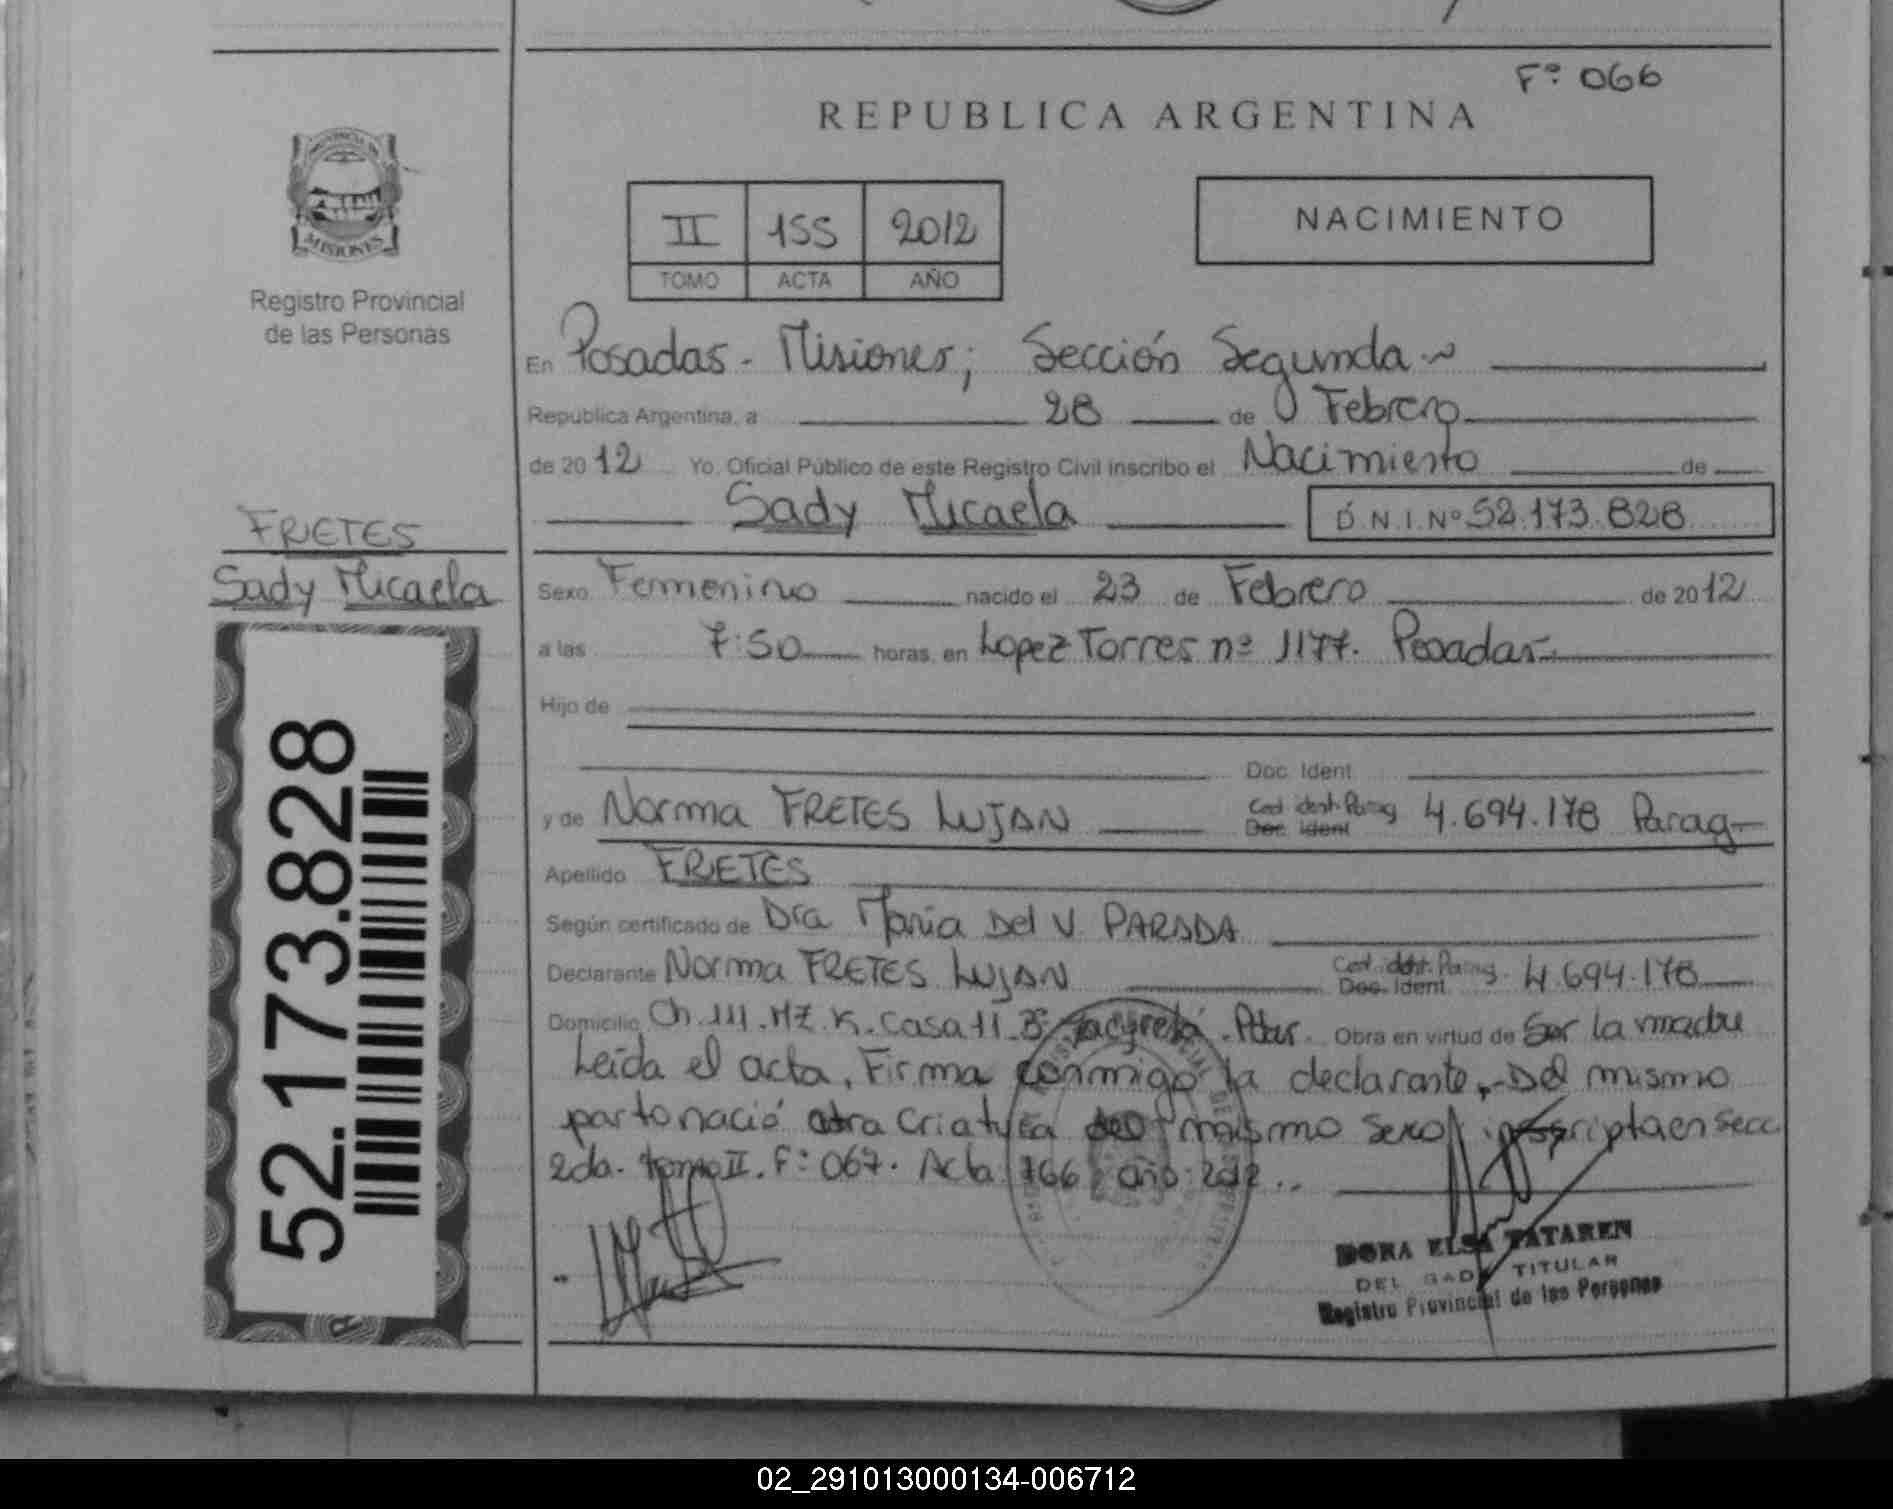 Fº 066
REPUBLICA ARGENTINA
PROVINCIA DE
MISIONES
Registro Provincial
de las Personas
II 155 2012
TOMO ACTA AÑO
NACIMIENTO
En Posadas - Misiones; Sección Segunda
Republica Argentina, a 28 de Febrero
de 2012 Yo, Oficial Público de este Registro Civil inscribo el Nacimiento de
Sady Micaela D.N.I. Nº 52.173.828
FRETES
Sady Micaela
Sexo Femenino nacido el 23 de Febrero de 2012
a las 7:50 horas, en Lopez Torres nº 1177. Posadas
Hijo de
Doc. Ident
y de Norma FRETES LUJAN Ced ident. Parag Doc. Ident 4.694.178 Parag
Apellido FRETES
Según certificado de Dra Maria Del V. PARADA
Declarante Norma FRETES LUJAN Ced. ident. Parag. Doc. Ident 4.694.178
Domicilio Ch. 111. MZ. K. Casa 11 Bº Yacyretá. Pdas. Obra en virtud de Ser la madre
Leida el acta, Firma conmigo la declarante. Del mismo
parto nació otra criatura del mismo sexo inscripta en Secc
2da. tomo II. Fº 067. Acta 166 año 2012..
52.173.828
DORA ELSA TATAREN
TITULAR
Registro Provincial de las Personas
02_291013000134-006712